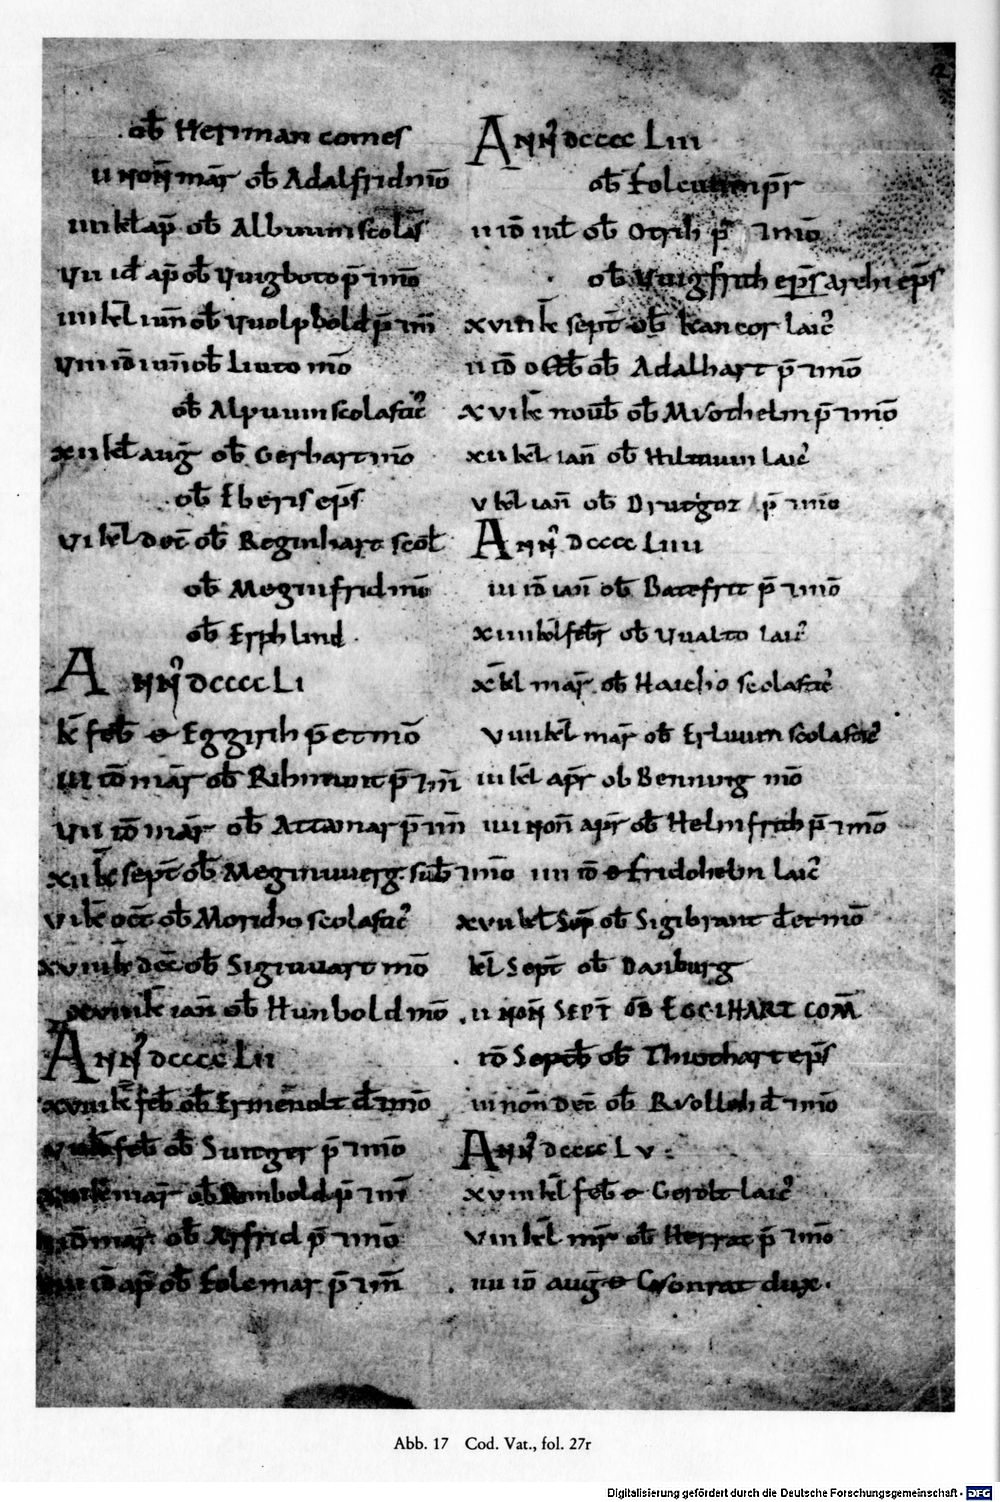 ob̄ Heriman comes
ii non̄ mar̄ ob̄ Adalfrid mō
iiii kl̄ ap̄ ob̄ Albuuin scolas̄
vii id̄ ap̄ ob̄ Vuigboto p̄ ⁊ mō
iiii kl̄ iun̄ ob̄ Vuolpbold p̄ ⁊ m̄
viii id̄ iun̄ ob̄ Liuto mō
ob̄ Alpuuin scolastic̄
xii kl̄ auḡ ob̄ Gerhart mō
ob̄ Eberis ep̄s
vi kl̄ dec̄ ob̄ Reginhart scol̄
ob̄ Meginfrid mō
ob̄ Erphlind
Ann̄ dcccc Li
kl̄ feb̄ ō Eggirih p̄ et mō
iii id̄ mar̄ ob̄ p̄ ⁊ m̄
vii id̄ mar̄ ob̄ Attamar p̄ ⁊ m̄
xii kl̄ sept̄ ob̄ Meginuuerg sub̄ ⁊ mō
vi kl̄ oct̄ ob̄ Moricho scolastic̄
xviii kl̄ dec̄ ob̄ Sigiuuart mō
xviiii kl̄ ian̄ ob̄ Hunbold mō
Ann̄ dcccc Lii
xviii kl̄ feb̄ ob̄ Ermenolt d̄ ⁊ mō
kl̄ feb̄ ob̄ Suitger p̄ ⁊ mō
kl̄ mar̄ ob̄ p̄ ⁊ m̄
id̄ mar̄ ob̄ Arfrid p̄ ⁊ mō
id̄ ap̄ ob̄ Folemar p̄ ⁊ m̄
Ann̄ dcccc Liii
ob̄ pr̄
ii id̄ iul̄ ob̄ Otrih p̄ ⁊ mō
ob̄ Vuigfrith ep̄s archi ep̄s
xviii kl̄ sept̄ ob̄ kancor laic̄
ii id̄ octb̄ ob̄ Adalhart p̄ ⁊ mō
xvi kl̄ noub̄ ob̄ Mvothelm p̄ ⁊ mō
xii kl̄ ian̄ ob̄ Hiltuuin laic̄
v kl̄ ian̄ ob̄ Drutgoz p̄ ⁊ mō
Ann̄ dcccc Liiii
iii id̄ ian̄ ob̄ Batefrit p̄ ⁊ mō
xiiii kl̄ febr̄ ob̄ Vualto laic̄
x kl̄ mar̄ ob̄ Haicho scolastic̄
viiii kl̄ mar̄ ob̄ Erluuin scolastic̄
iii kl̄ apr̄ ob Bennung mō
iiii non̄ apr̄ ob̄ Helmfrith p̄ ⁊ mō
iiii id̄ ō Fridohelm laic̄
xvii kl̄ Sep̄ ob̄ Sigibrant d̄ et mō
kl̄ Sept̄ ob̄ Danburg
ii non̄ SEPT̄ OB̄ EGGIHART COM̄
id̄ Septb̄ ob̄ Thiothart ep̄s
iii non̄ dec̄ ob̄ Rvolloh d̄ ⁊ mō
Ann̄ dcccc L v
xviii kl̄ feb̄ ō Gerolt laic̄
viii kl̄ mr̄ ob̄ Herrat p̄ ⁊ mō
iiii id̄ auḡ ō Cvonrat dux
Abb. 17 Cod. Vat., fol. 27r
Digitalisierung gefördert durch die Deutsche Forschungsgemeinschaft - DFG